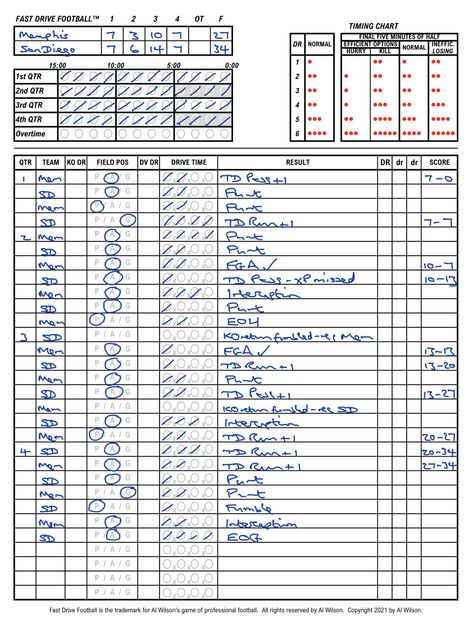 FAST DRIVE FOOTBALL™ 1 2 3 4 OT F
Memphis 7 3 10 7 27
San Diego 7 6 14 7 34
15:00 10:00 5:00 0:00
1st QTR
2nd QTR
3rd QTR
4th QTR
Overtime
TIMING CHART
FINAL FIVE MINUTES OF HALF
DR NORMAL EFFICIENT OPTIONS NORMAL INEFFIC.
HURRY KILL LOSING
1
2
3
4
5
6
QTR TEAM KO DR FIELD POS DV DR DRIVE TIME RESULT DR dr dr SCORE
1 Mem P / A / G TD Pass +1 7-0
SD P / A / G Punt
Mem P / A / G Punt
SD P / A / G TD Run +1 7-7
2 Mem P / A / G Punt
SD P / A / G Punt
Mem P / A / G FGA ✓ 10-7
SD P / A / G TD Pass - xP missed 10-13
Mem P / A / G Interception
SD P / A / G Punt
Mem P / A / G EOH
3 SD P / A / G KO return fumbled - rec Mem
Mem P / A / G FGA ✓ 13-13
SD P / A / G TD Run +1 13-20
Mem P / A / G Punt
SD P / A / G TD Pass +1 13-27
Mem P / A / G KO return fumbled - rec SD
SD P / A / G Interception
Mem P / A / G TD Run +1 20-27
4 SD P / A / G TD Run +1 20-34
Mem P / A / G TD Run +1 27-34
SD P / A / G Punt
Mem P / A / G Punt
SD P / A / G Fumble
Mem P / A / G Interception
SD P / A / G EOG
P / A / G
P / A / G
P / A / G
Fast Drive Football is the trademark for Al Wilson's game of professional football. All rights reserved by Al Wilson. Copyright 2021 by Al Wilson.